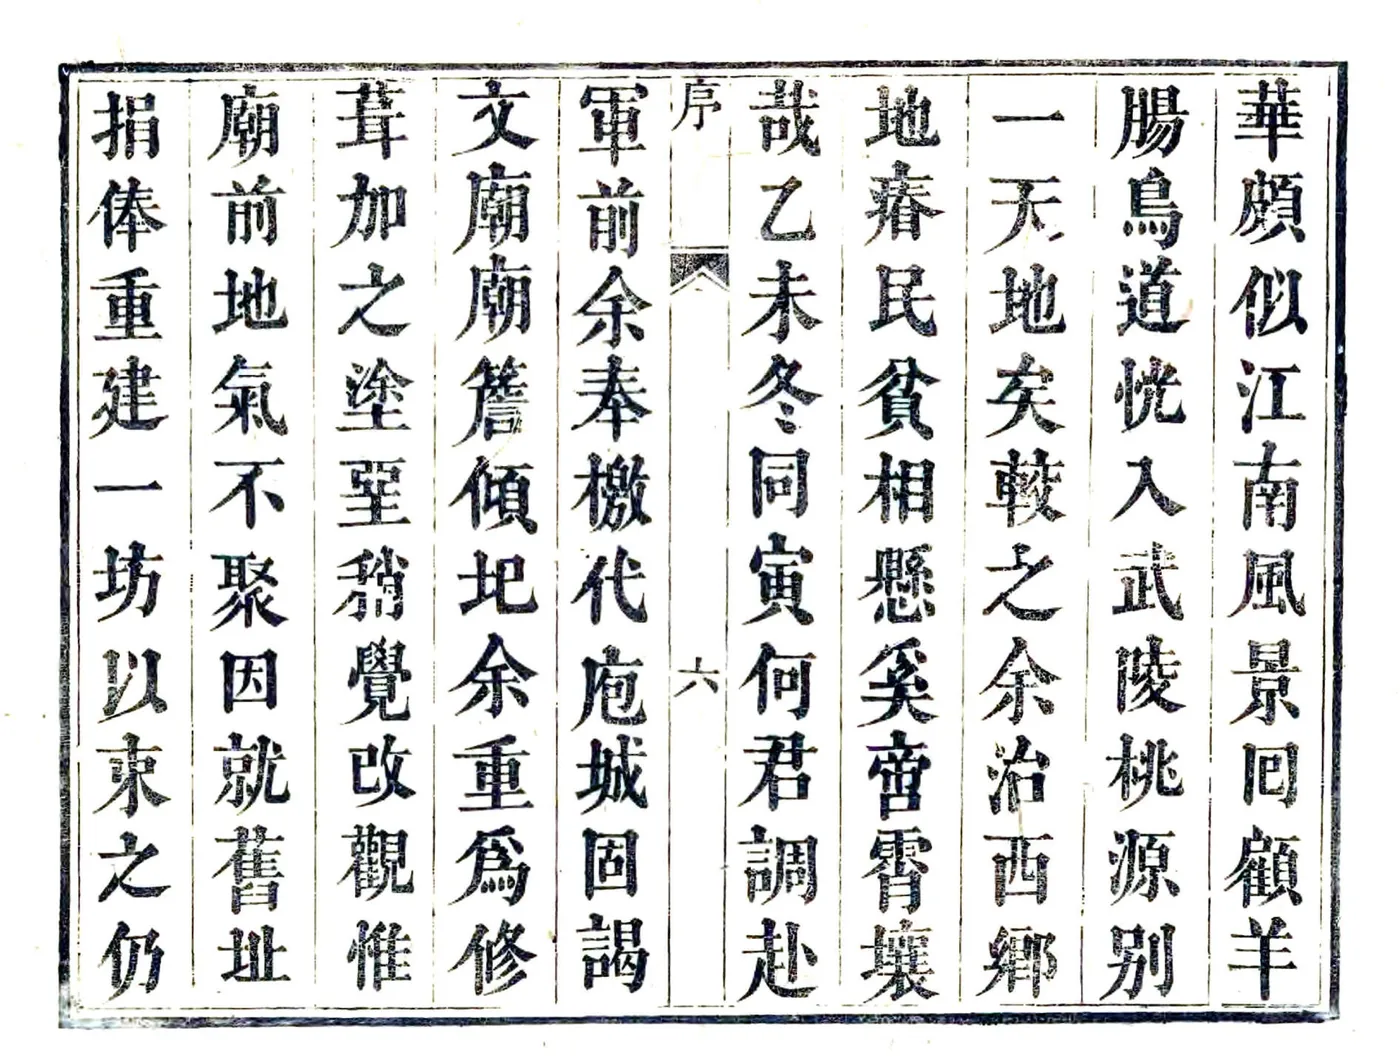 華頗似江南風景囘顧羊
腸鳥道恍入武陵桃源别
一天地矣較之余治西鄉
地瘠民貧相懸奚啻霄壤
哉乙未冬同寅何君調赴
序
六
軍前余奉檄代庖城固謁
文廟廟簷傾圯余重爲修
葺加之塗堊稍覺改觀惟
廟前地氣不聚因就舊址
捐俸重建一坊以束之仍